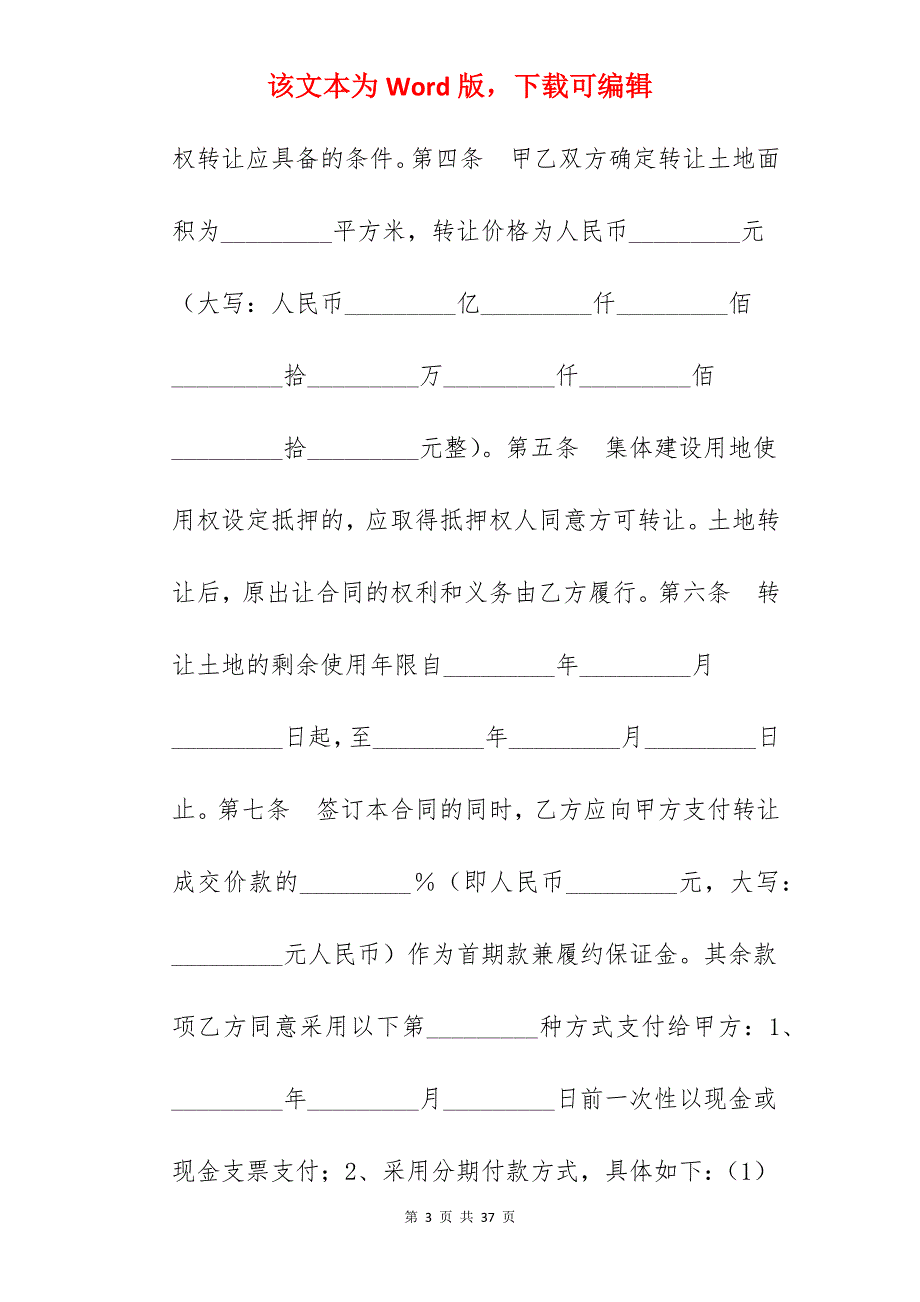 该文本为 Word 版，下载可编辑
权转让应具备的条件。第四条　甲乙双方确定转让土地面
积为_________平方米，转让价格为人民币_________元
（大写：人民币_________亿_________仟_________佰
_________拾_________万_________仟_________佰
_________拾_________元整）。第五条　集体建设用地使
用权设定抵押的，应取得抵押权人同意方可转让。土地转
让后，原出让合同的权利和义务由乙方履行。第六条　转
让土地的剩余使用年限自_________年_________月
_________日起，至_________年_________月_________日
止。第七条　签订本合同的同时，乙方应向甲方支付转让
成交价款的_________％（即人民币_________元，大写：
_________元人民币）作为首期款兼履约保证金。其余款
项乙方同意采用以下第_________种方式支付给甲方：1、
_________年_________月_________日前一次性以现金或
现金支票支付；2、采用分期付款方式，具体如下：（1）
第 3 页 共 37 页